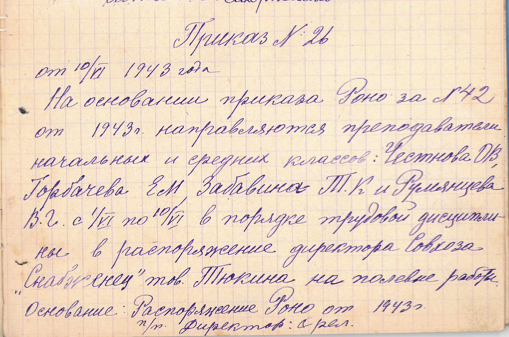 Приказ № 26
от 10/VI 1943 года
На основании приказа Роно за №42
от 1943г. направляются преподаватели
начальных и средних классов: Честнова О.В,
Горбачева Е.М Забавина Т.К и Румянцева
В.Г. с 1/VI по 10/VI в порядке трудовой дисципли
ны в распоряжение директора Совхоза
"Снабженец" тов. Тюкина на полевые работы.
Основание: Распоряжение Роно от 1943г
п/п. Директор: